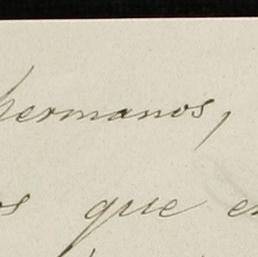 hermanos,
os que en